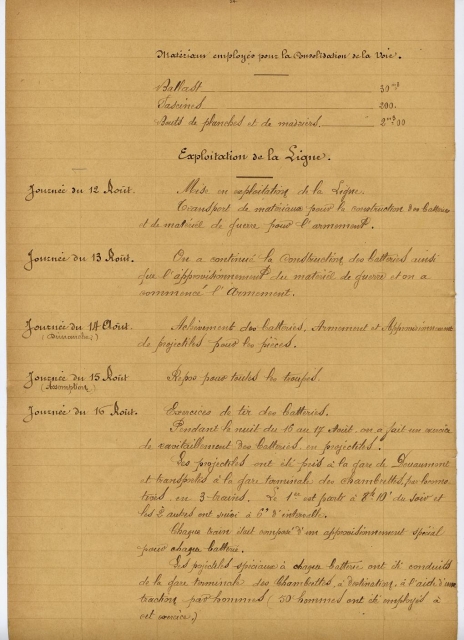 Matériaux employés pour la Consolidation de la Voie.
Ballast 30 m3
Fascines 200.
Bouts de planches et de madriers 2 m3 00
Exploitation de la Ligne.
Journée du 12 Août. Mise en exploitation de la Ligne.
Transport de matériaux pour la construction des batteries
et de matériel de guerre pour l'armement.
Journée du 13 Août. On a continué la construction des batteries ainsi
que l'approvisionnement du matériel de guerre et on a
commencé l'Armement.
Journée du 14 Août. Achèvement des batteries. Armement et Approvisionnement
(Dimanche) de projectiles pour les pièces.
Journée du 15 Août Repos pour toutes les troupes.
(Assomption)
Journée du 16 Août. Exercices de tir des batteries.
Pendant la nuit du 16 au 17 Août on a fait un service
de ravitaillement des batteries en projectiles.
Les projectiles ont été pris à la gare de Douaumont
et transportés à la gare terminale des Chambrettes, par hommes
en 3 trains. Le 1er est parti à 8h 10' du soir et
les 2 autres ont suivi à 6' d'intervalle.
Chaque train était composé d'un approvisionnement spécial
pour chaque batterie.
Les projectiles spéciaux à chaque batterie ont été conduits
de la gare terminale des Chambrettes, à destination, à l'aide d'une
traction par hommes (50 hommes ont été employés à
cet service.)